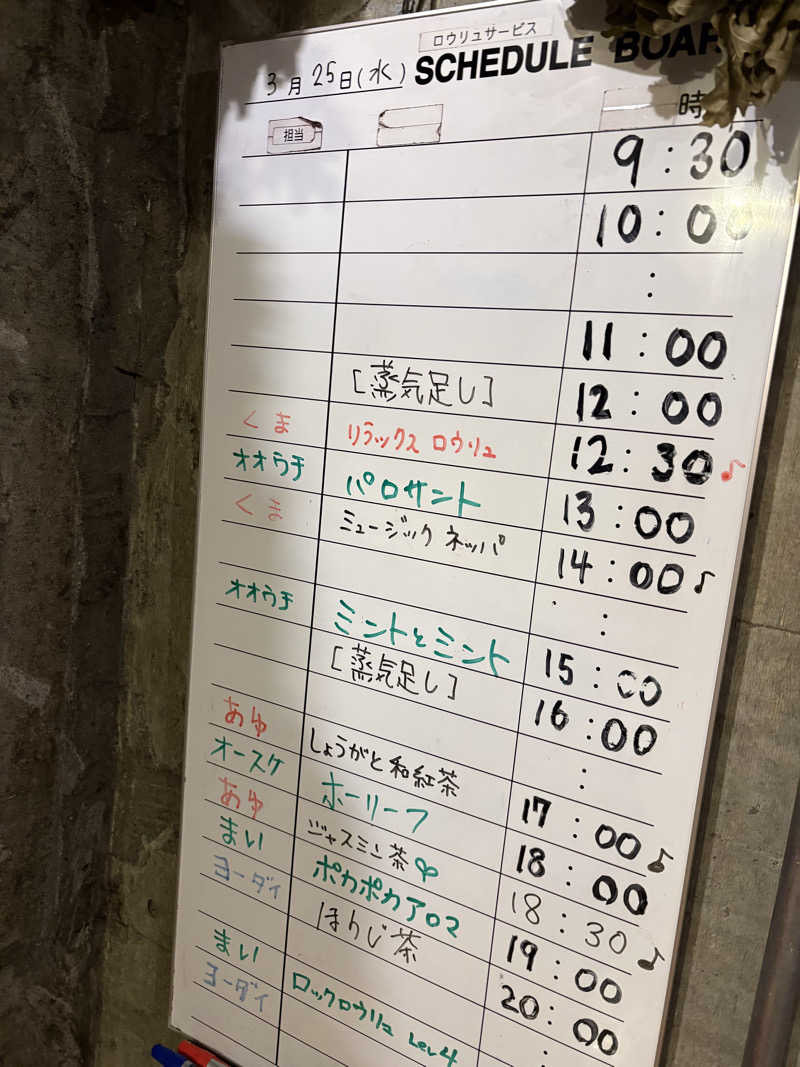 ロウリュサービス
3月25日(水) SCHEDULE BOAR
担当 時
9:30
10:00
:
11:00
[蒸気足し] 12:00
くま リラックス ロウリュ 12:30♪
オオウチ パロサント 13:00
くま ミュージック ネッパ 14:00♪
:
オオウチ ミントとミント 15:00
[蒸気足し] 16:00
:
あゆ しょうがと和紅茶 17:00♪
オースケ ホーリーフ 18:00
あゆ ジャスミン茶 18:30♪
まい ポカポカアロマ 19:00
ヨーダイ ほうじ茶 20:00
:
まい ロックロウリュ Lev4
ヨーダイ